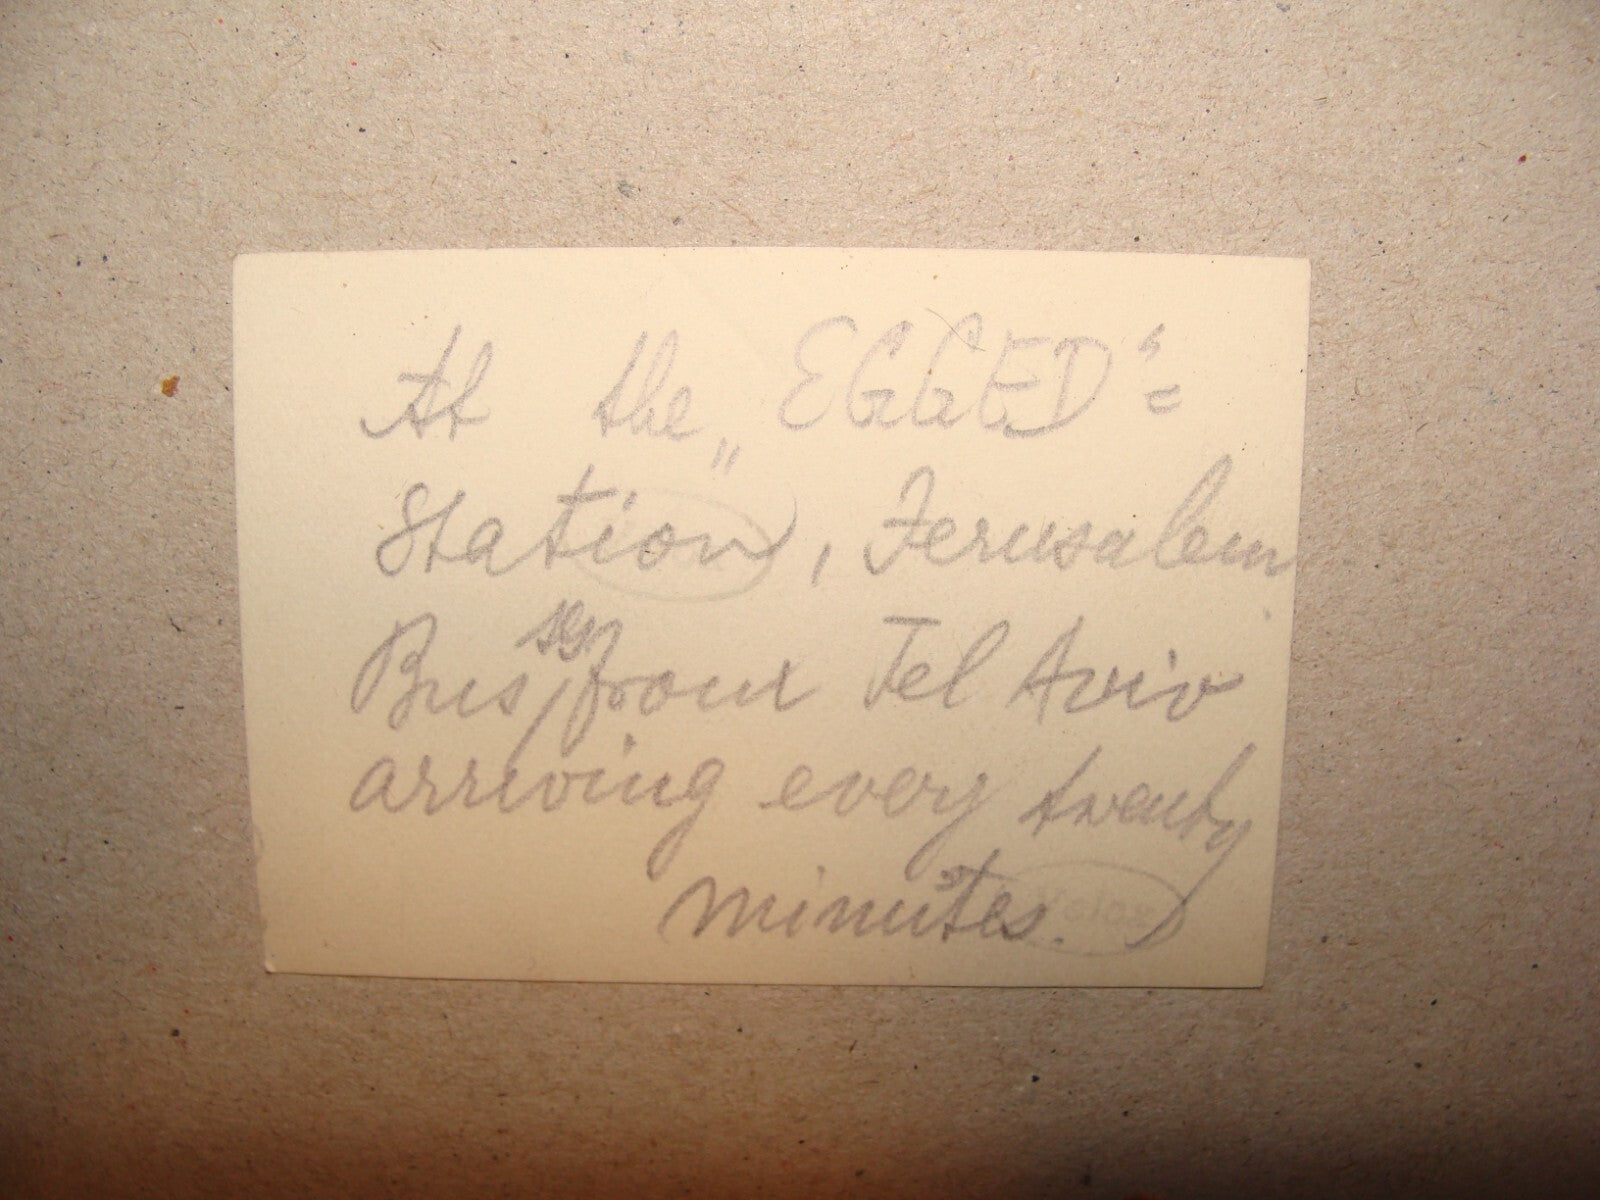 At the „EGGED“=
Station, Jerusalem
Bus, from Tel Aviv
arriving every twenty
minutes.